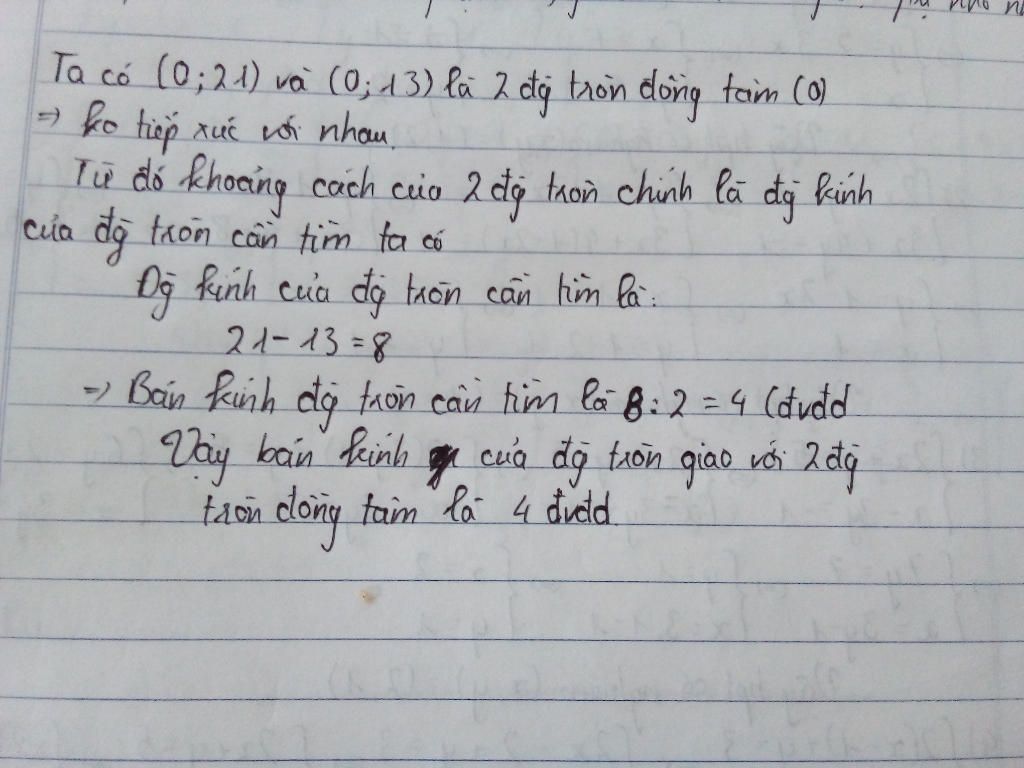 Ta có (0;21) và (0;13) là 2 đg tròn đồng tâm (0)
=> ko tiếp xúc với nhau.
Từ đó khoảng cách của 2 đg tròn chính là đg kính
của đg tròn cần tìm ta có
Đg kính của đg tròn cần tìm là:
21-13 = 8
=> Bán kính đg tròn cần tìm là 8:2 = 4 (đvđd
Vậy bán kính của đg tròn giao với 2 đg
tròn đồng tâm là 4 đvđd.